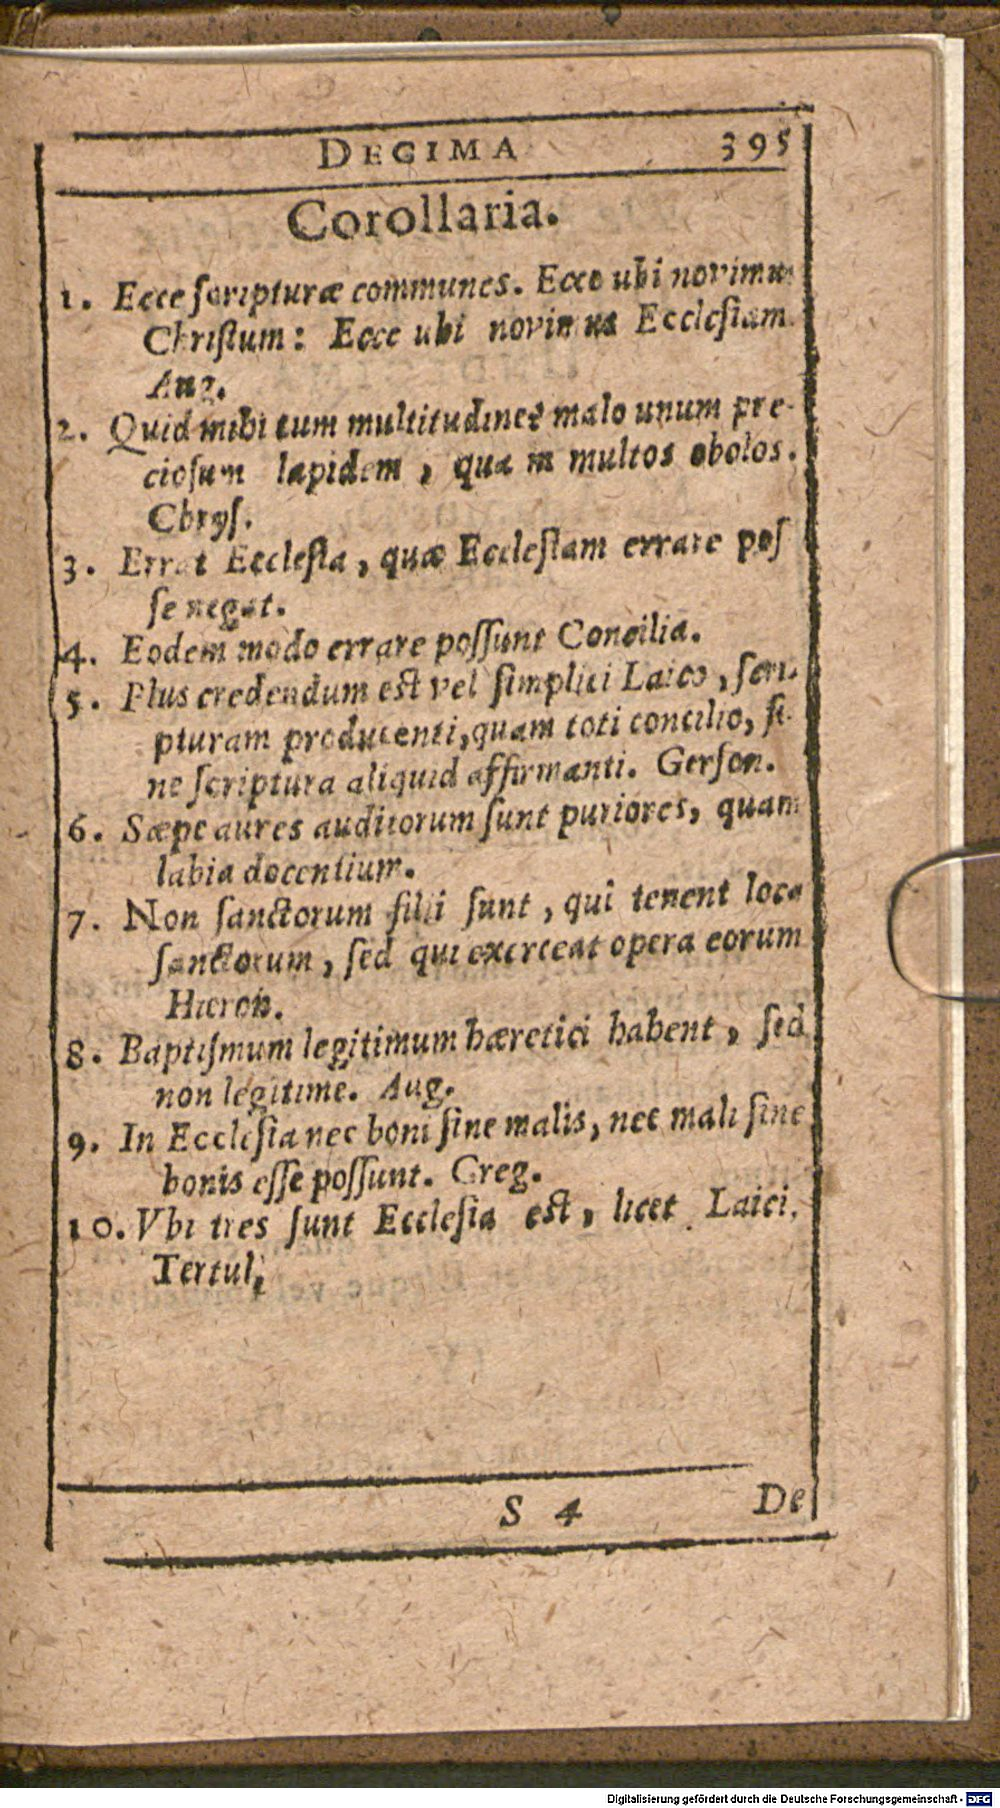 DECIMA 395
Corollaria.
1. Ecce ſcripturæ communes. Ecce ubi novimus
Chriſtum: Ecce ubi novimus Eccleſiam
Aug.
2. Quid mihi cum multitudine? malo unum pre-
cioſum lapidem, quam multos obolos.
Chryſ.
3. Errat Eccleſia, quæ Eccleſiam errare poſ
ſe negat.
4. Eodem modo errare poſſunt Concilia.
5. Plus credendum est vel ſimplici Laico, ſcri-
pturam producenti, quam toti concilio, ſi-
ne ſcriptura aliquid affirmanti. Gerſon.
6. Sæpe aures auditorum ſunt puriores, quam
labia docentium.
7. Non ſanctorum filii ſunt, qui tenent loca
ſanctorum, ſed qui exerceat opera eorum
Hieron.
8. Baptiſmum legitimum hæretici habent, ſed
non legitime. Aug.
9. In Eccleſia nec boni ſine malis, nec mali ſine
bonis eſſe poſſunt. Greg.
10. Vbi tres ſunt Eccleſia est, licet Laici.
Tertul,
S 4 De
Digitalisierung gefördert durch die Deutsche Forschungsgemeinschaft - DFG